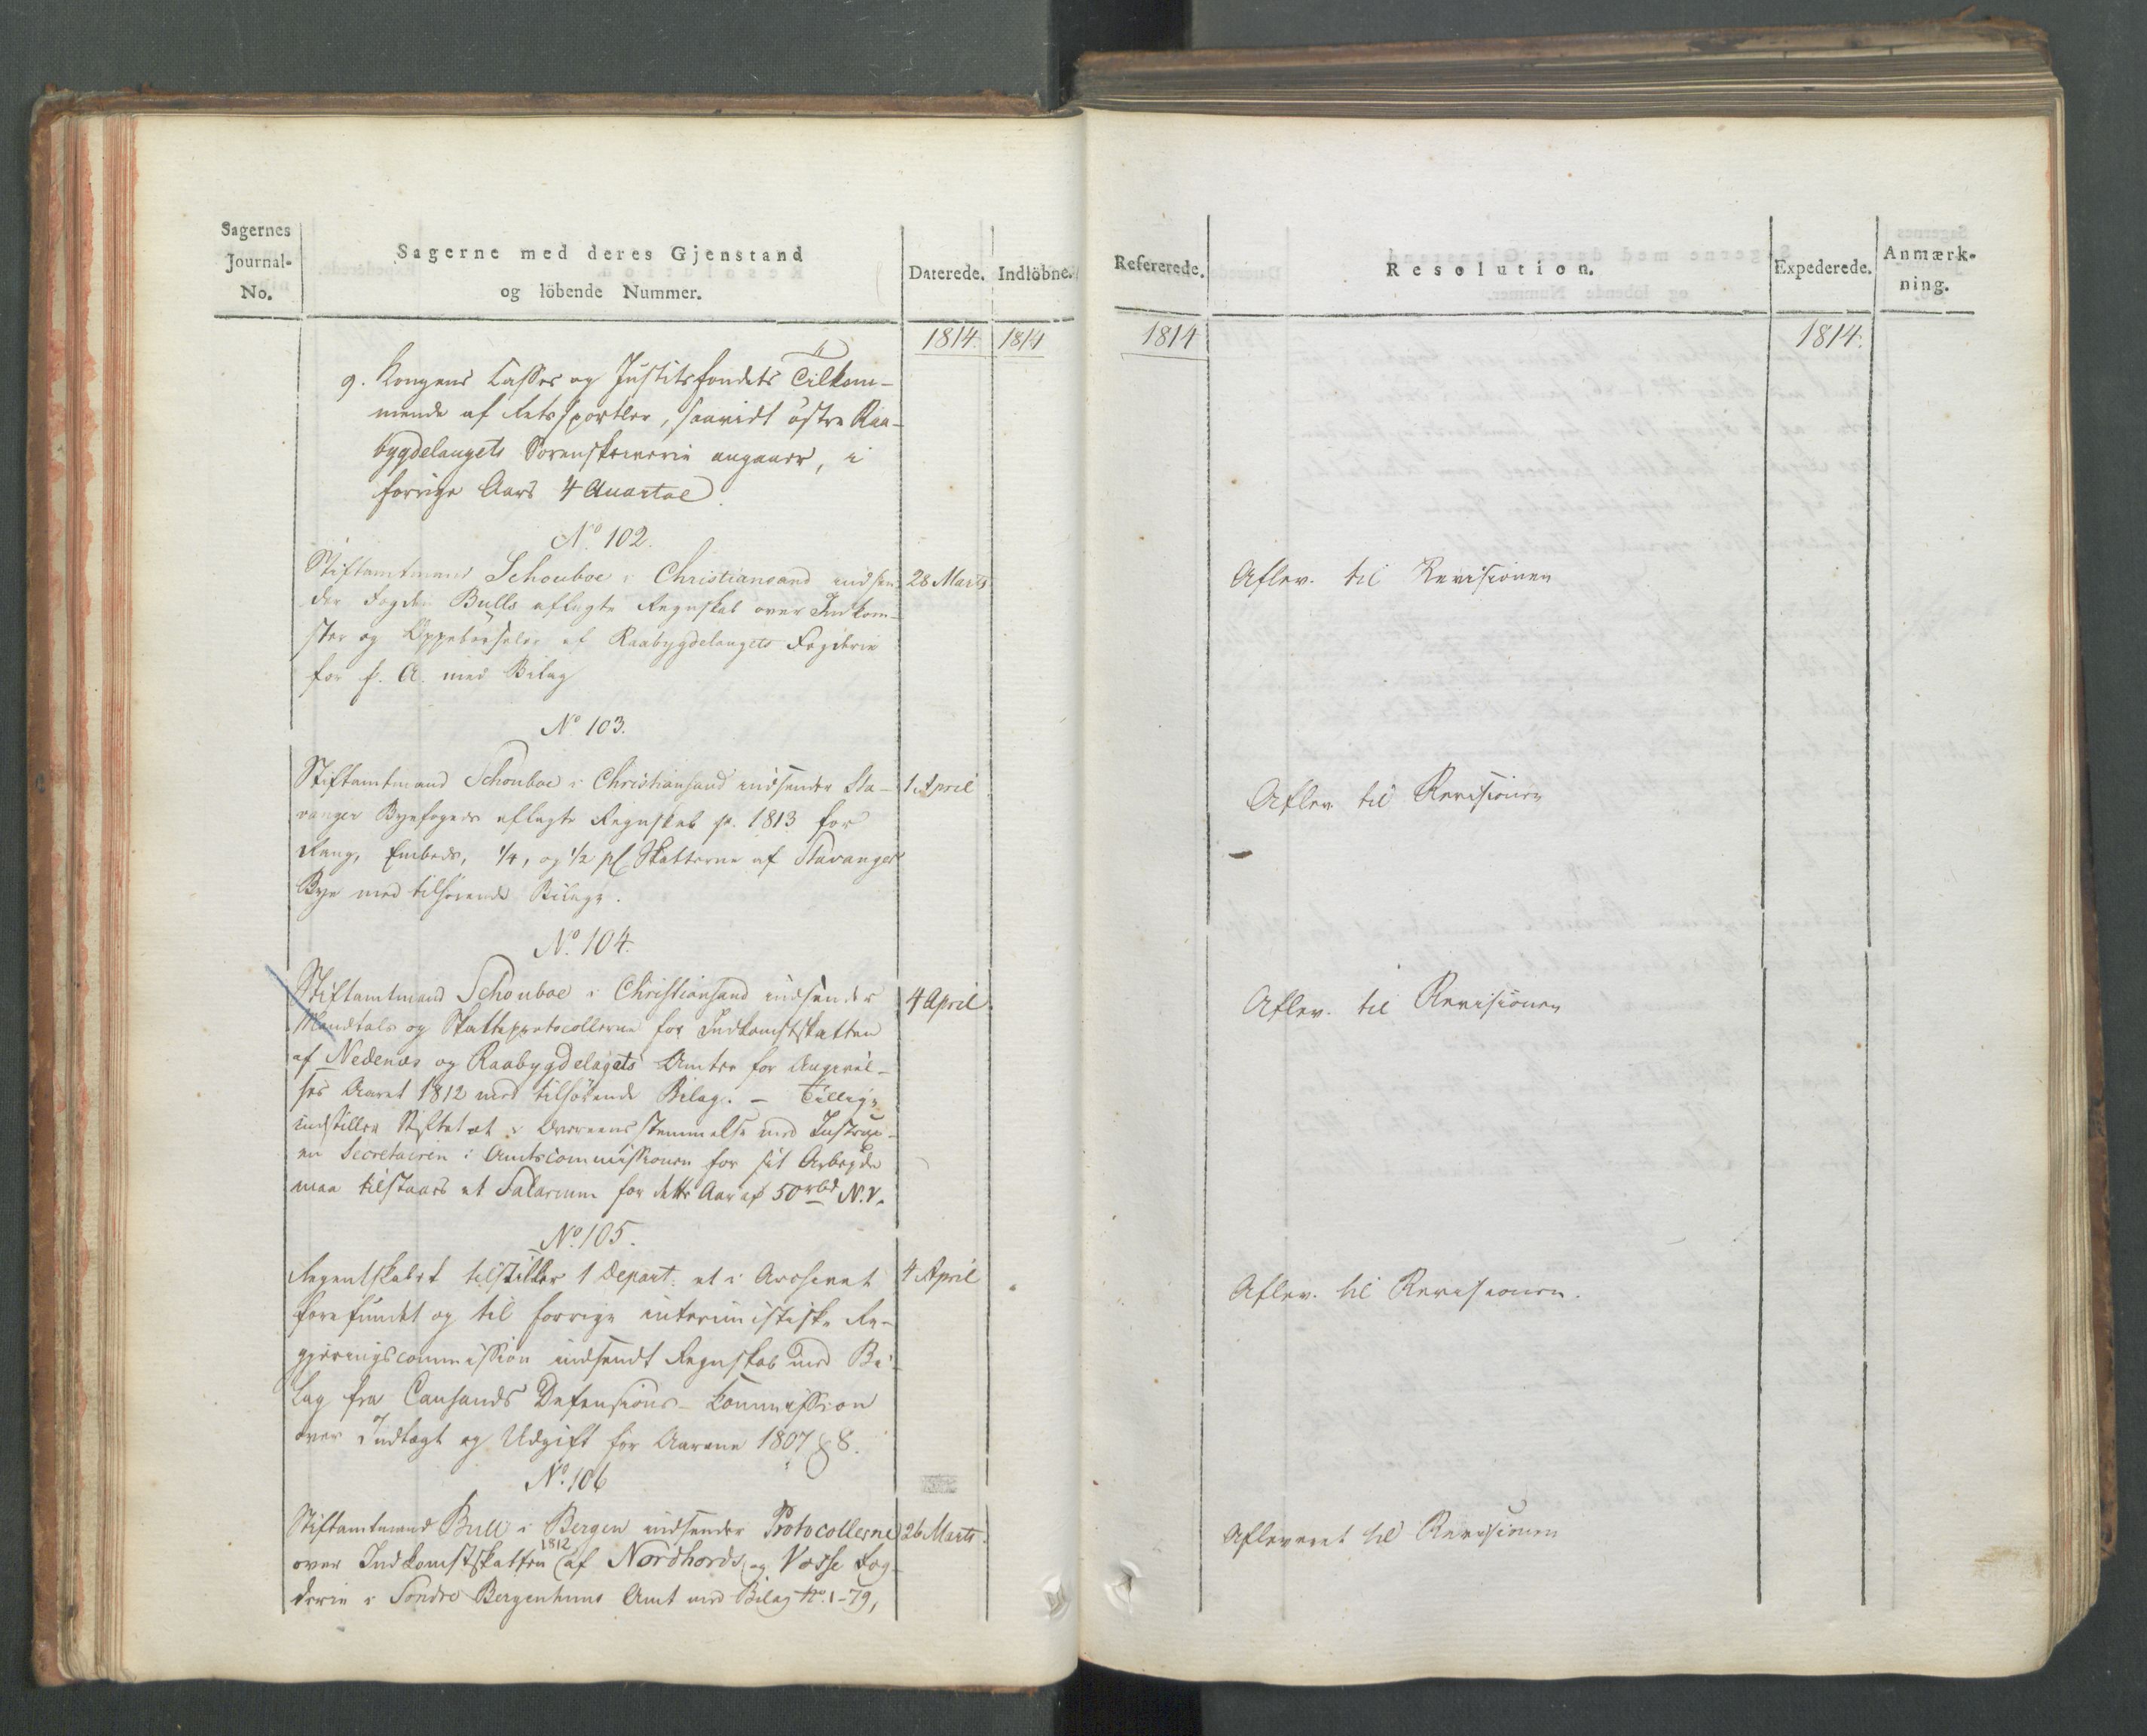 Sagernes
Journal-
No.
Sagerne med deres Gjenstand
og löbende Nummer.
Daterede.
Indlöbne.
1814.
1814
9. Kongens Casses og Justitsfondets Tilkom-
mende af Retssportler, saavidt östre Raa-
bygdelaugets Sorenskriverie angaaer, i
forrige Aars 4 Quartal.
No. 102.
Stiftamtmand Schouboe i Christiansand indsen-
28 Marts
der Foged Bulls aflagte Regnskab over Indkom-
ster og af Raabygdelaugets Fogderie
for f. A. med Bilag
No 103.
Stiftamtmand Schouboe i Christiansand indsender Sta-
1. April
vanger Byefogeds aflagte Regnskab p. 1813 for
Rang, Embeds, 1/4, og 1/2 pC Skatterne af Stavanger
Bye med tilhörende Bilage.
No. 104.
Stiftamtmand Schouboe i Christiansand indsender
4 April
Mandtals og Skatteprotocollerne for Indkomstskatten
af Nedenæs og Raabygdelagets Amter for Angivel-
ses Aaret 1812 med tilhörende Bilag. - Tillige
indstiller Stiftet at i Overeensstemmelse med Instrux-
en Secretairen i Amtscommissionen for sit Arbeyde
maa tilstaaes et Salarium for dette Aar af 50 rbd N.V.
No. 105.
Regentskabet tilstiller 1 Depart. et i Archivet
4 April
forefundet og til forrige interimistiske Re-
gjeringscommission indsendt Regnskab med Bi-
lag fra Cansands Defensions-Commission
over Indtægt og Udgift for Aarene 1807 & 8.
No. 106
Stiftamtmand Bull i Bergen indsender Protocollerne
26 Marts.
over Indkomstskatten 1812 af Nordhords og Vosse Fog-
derie i Söndre Bergenhuus Amt med Bilag No. 1-79,
Refererede.
Resolution.
Expederede.
Anmærk-
ning.
1814
1814.
Aflev. til Revisionen
Aflev. til Revisionen
Aflev. til Revisionen
Aflev. til Revisionen.
Afleveret til Revisionen